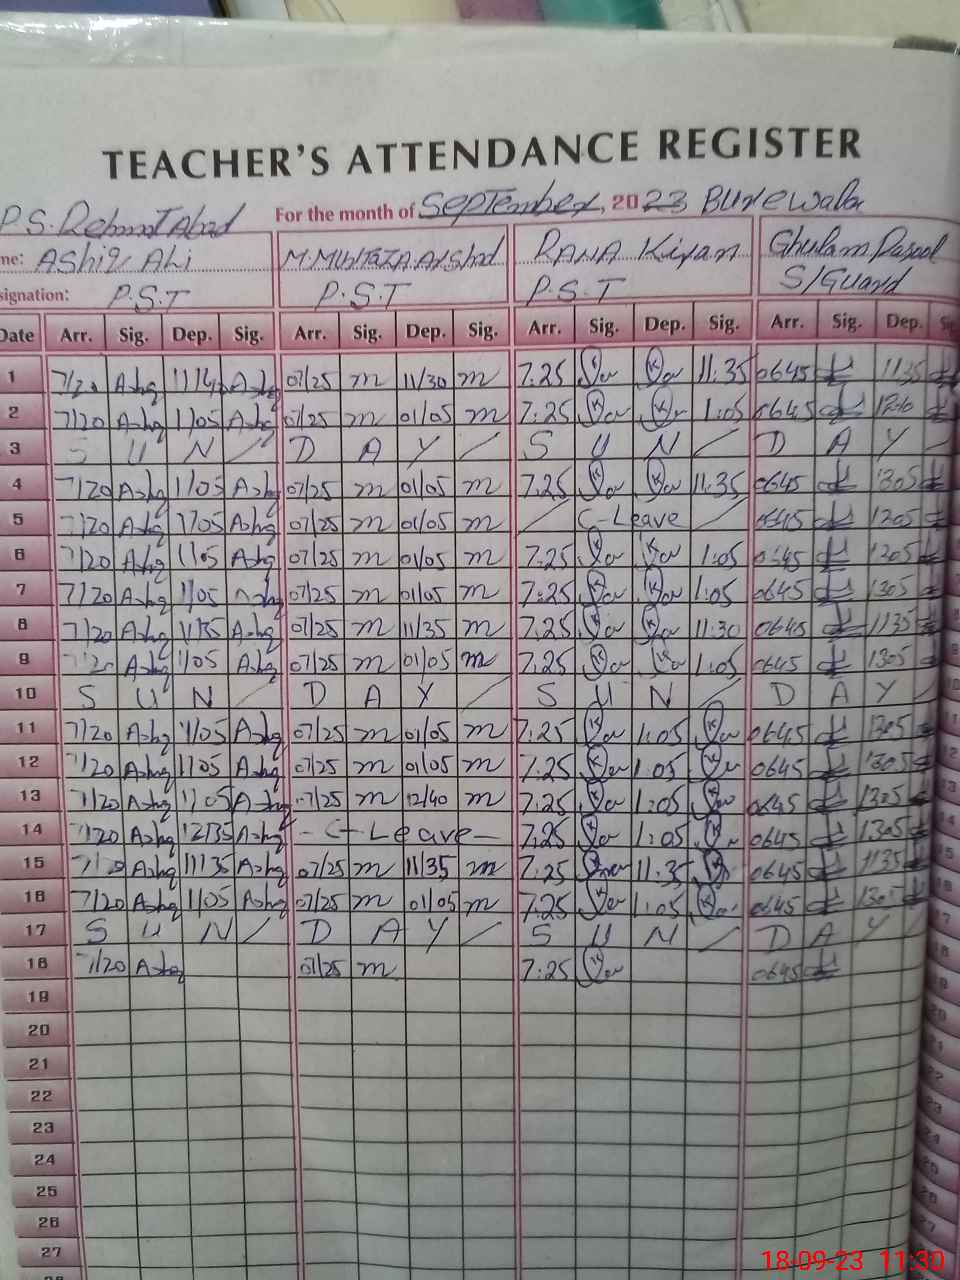 TEACHER'S ATTENDANCE REGISTER
P.S. RehmatAbad For the month of September, 2023 Burewala
me: AShiq ALi M.MURtaZA ARShad RANA Kiran Ghulam Rasool
signation: P.S.T P.S.T P.S.T S/Guard
Date Arr. Sig. Dep. Sig. Arr. Sig. Dep. Sig. Arr. Sig. Dep. Sig. Arr. Sig. Dep. Sig
1 7/20 Ashq 07/25 m 11/30 m 7:25 11:35 0645 1135
2 7/20 Ashq 1/05 Ashq 07/25 m 01/05 m 7:25 1:05 0645
3 S U N / D A Y / S U N / D A Y /
4 7/20 Ashq 1/05 Ashq 07/25 m 01/05 m 7:25 11:35 0645 1305
5 7/20 Ashq 1/05 Ashq 07/25 m 01/05 m / C-Leave / 0645 1205
6 7/20 Ashq 1/05 Ashq 07/25 m 01/05 m 7:25 1:05 0645 1205
7 7/20 Ashq 1/05 Ashq 07/25 m 01/05 m 7:25 1:05 0645 1305
8 7/20 Ashq 11/35 Ashq 07/25 m 11/35 m 7.25 11:30 0645 1135
9 7/20 Ashq 1/05 Ashq 07/25 m 01/05 m 7:25 1:05 0645 1305
10 S U N / D A Y / S U N / D A Y
11 7/20 Ashq 1/05 Ashq 07/25 m 01/05 m 7:25 1:05 0645 1305
12 7/20 Ashq 1/05 Ashq 07/25 m 01/05 m 7.25 1:05 0645 1305
13 7/20 Ashq 1/05 Ashq 07/25 m 12/40 m 7.25 1:05 0645 1305
14 7/20 Ashq 12/35 Ashq - C-Leave - 7.25 1:05 0645 1305
15 7/20 Ashq 11/35 Ashq 07/25 m 11/35 m 7.25 11:35 0645 1135
16 7/20 Ashq 1/05 Ashq 07/25 m 01/05 m 7.25 1:05 0645 1305
17 S U N / D A Y / S U N / D A Y /
18 7/20 Ashq 07/25 m 7:25 0645
19
20
21
22
23
24
25
26
27
18-09-23 11:30